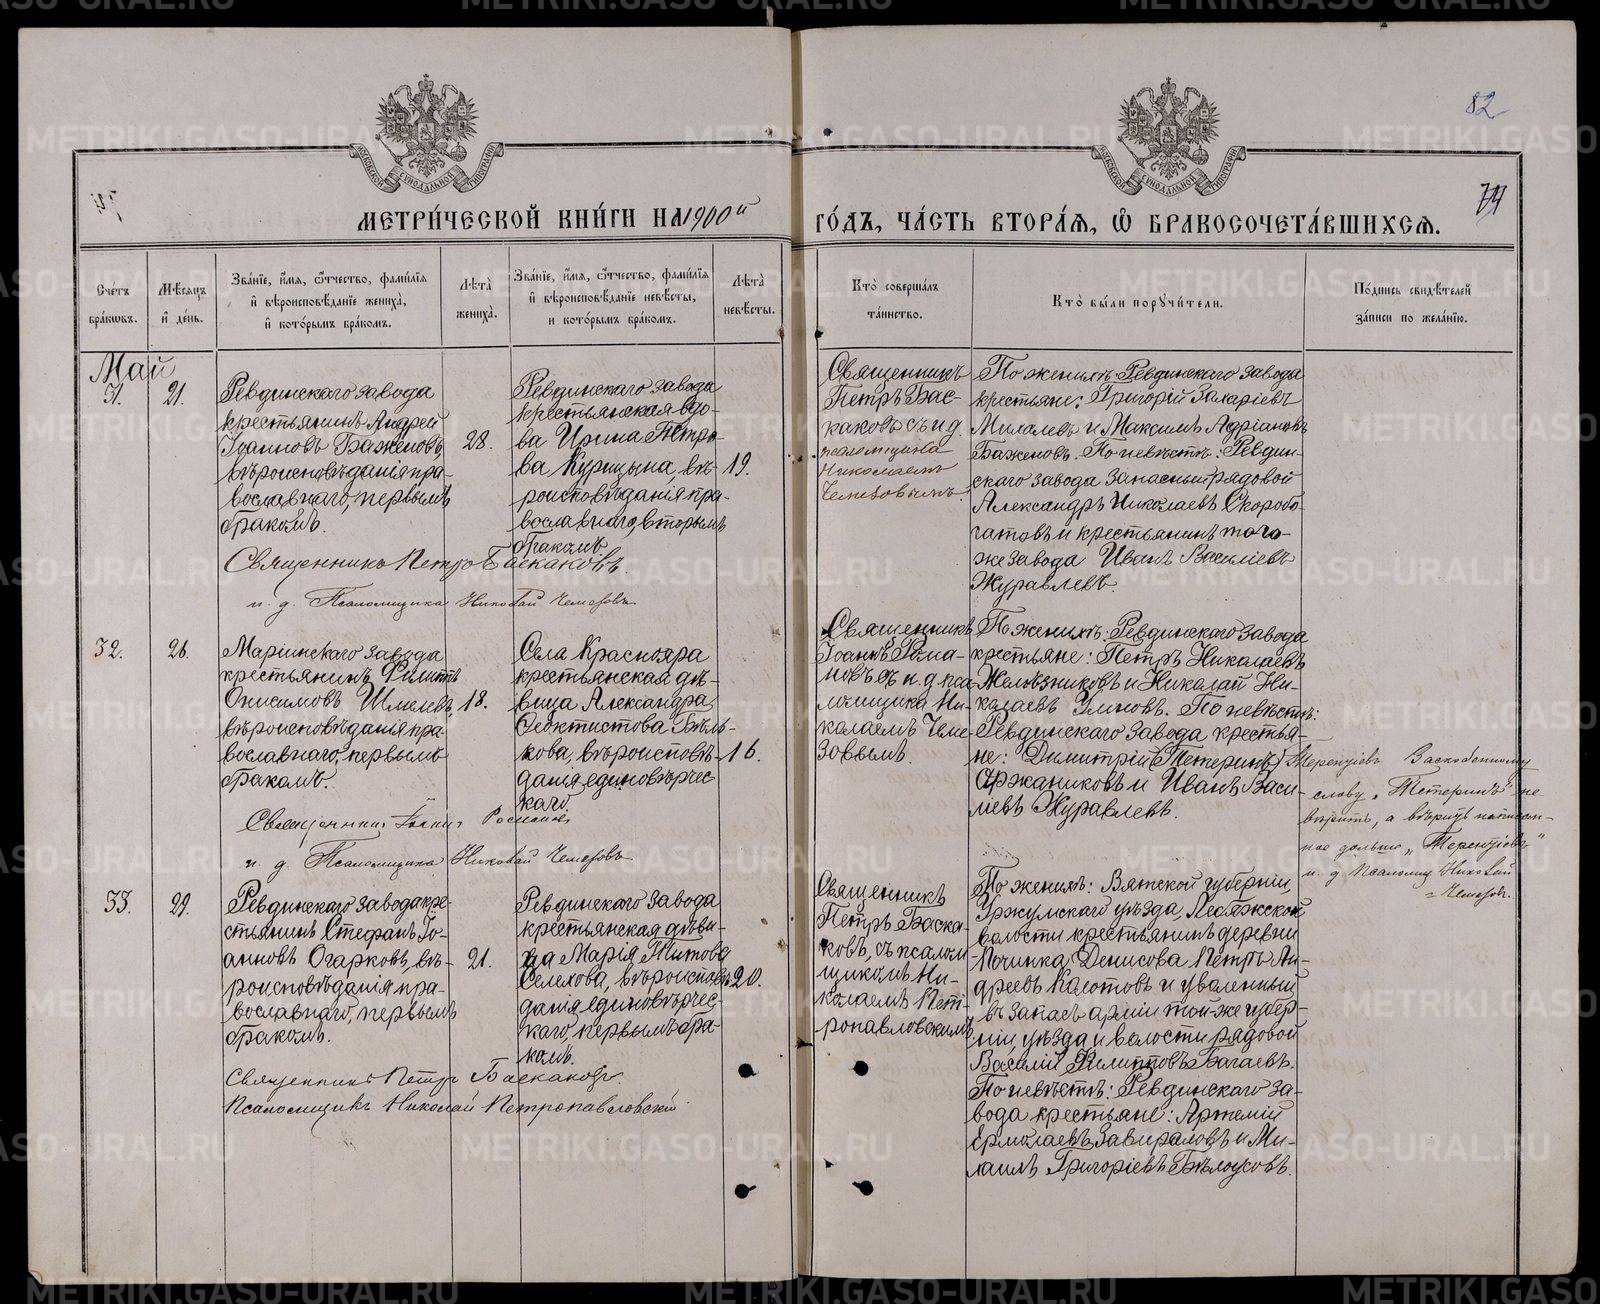 82
74
МЕТРИ́ЧЕСКОЙ КНИ́ГИ НА 1900й
ГО́ДЪ, ЧА́СТЬ ВТОРА́Я, Ѿ БРАКОСОЧЕТА́ВШИХСЯ.
Сче́тъ бра́кѡвъ.
Мѣ́сяцъ и҆ де́нь.
Зва́нїе, и҆́мя, ѻ҆́тчество, фами́лїя
и҆ вѣроисповѣ́данїе жениха̀,
и҆ кото́рымъ бра́комъ.
Лѣ́та̀ жениха̀.
Зва́нїе, и҆́мя, ѻ҆́тчество, фами́лїя
и҆ вѣроисповѣ́данїе невѣ́сты,
и кото́рымъ бра́комъ.
Лѣ́та̀ невѣ́сты.
Кто̀ соверша́лъ та́инство.
Кто̀ бы́ли порꙋчи́тели.
По́дпись свидѣ́телей
за́писи по жела́нїю.
Май
31.
21.
Ревдинскаго завода
крестьянинъ Андрей
Іоанновъ Баженовъ,
вѣроисповѣданія пра-
вославнаго, первымъ
бракомъ.
28.
Ревдинскаго завода
крестьянская вдо-
ва Ирина Петро-
ва Курицына, вѣ-
роисповѣданія пра-
вославнаго, вторымъ
бракомъ.
19.
Священникъ
Петръ Бас-
каковъ съ и.д.
псаломщика
Николаемъ
Чемезовымъ.
По женихѣ: Ревдинскаго завода
крестьяне: Григорій Захаріевъ
Михалевъ и Максимъ Адріановъ
Баженовъ. По невѣстѣ: Ревдин-
скаго завода запасный рядовой
Александръ Николаевъ Скоробо-
гатовъ и крестьянинъ того-
же завода Иванъ Василіевъ
Журавлевъ.
Священникъ Петръ Баскаковъ.
и. д. Псаломщика Николай Чемезовъ
32.
26.
Маріинскаго завода
крестьянинъ Филиппъ
Онисимовъ Шмелевъ,
вѣроисповѣданія пра-
вославнаго, первымъ
бракомъ.
18.
Села Краснояра
крестьянская дѣ-
вица Александра
Ѳеоктистова Бѣль-
кова, вѣроисповѣ-
данія единовѣрчес
каго.
16.
Священникъ
Іоаннъ Рома-
новъ съ и.д. пса
ломщика Ни-
колаемъ Чеме
зовымъ.
По женихѣ: Ревдинскаго завода
крестьяне: Петръ Николаевъ
Желѣзниковъ и Николай Ни-
колаевъ Умновъ. По невѣстѣ:
Ревдинскаго завода крестья-
не: Димитрій (Тетеринъ) Терентіевъ
Оржаниковъ и Иванъ Васи-
лиевъ Журавлевъ.
Заскобенному
слову „Тетеринъ“ не
вѣрить, а вѣрить написан-
ное дальше „Терентіевъ“
и. д. Псаломщ. Николай
Чемезовъ.
Священникъ Іоаннъ Романовъ
и. д. Псаломщика Николай Чемезовъ
33.
29.
Ревдинскаго завода кре-
стьянинъ Стефанъ Іо-
анновъ Огарковъ, вѣ-
роисповѣданія пра-
вославнаго, первымъ
бракомъ.
21.
Ревдинскаго завода
крестьянская дѣви-
ца Марія Титова
Селехова, вѣроисповѣ-
данія единовѣрчес-
каго, первымъ бра-
комъ.
20.
Священникъ
Петръ Баска-
ковъ, съ псалом
щикомъ Ни-
колаемъ Пет-
ропавловскимъ.
По женихѣ: Вятской губерніи,
Уржумскаго уѣзда, Лебяжской
волости крестьянинъ деревни
Починка Денисова Петръ Ан-
дреевъ Колотовъ и уволенный
въ запасъ арміи той-же губер-
ніи, уѣзда и волости рядовой
Василій Филипповъ Багаевъ.
По невѣстѣ: Ревдинскаго за-
вода крестьяне: Артемій
Ермолаевъ Завираловъ и Ми-
хаилъ Григоріевъ Бѣлоусовъ.
Священникъ Петръ Баскаковъ.
Псаломщикъ Николай Петропавловскій
METRIKI.GASO-URAL.RU